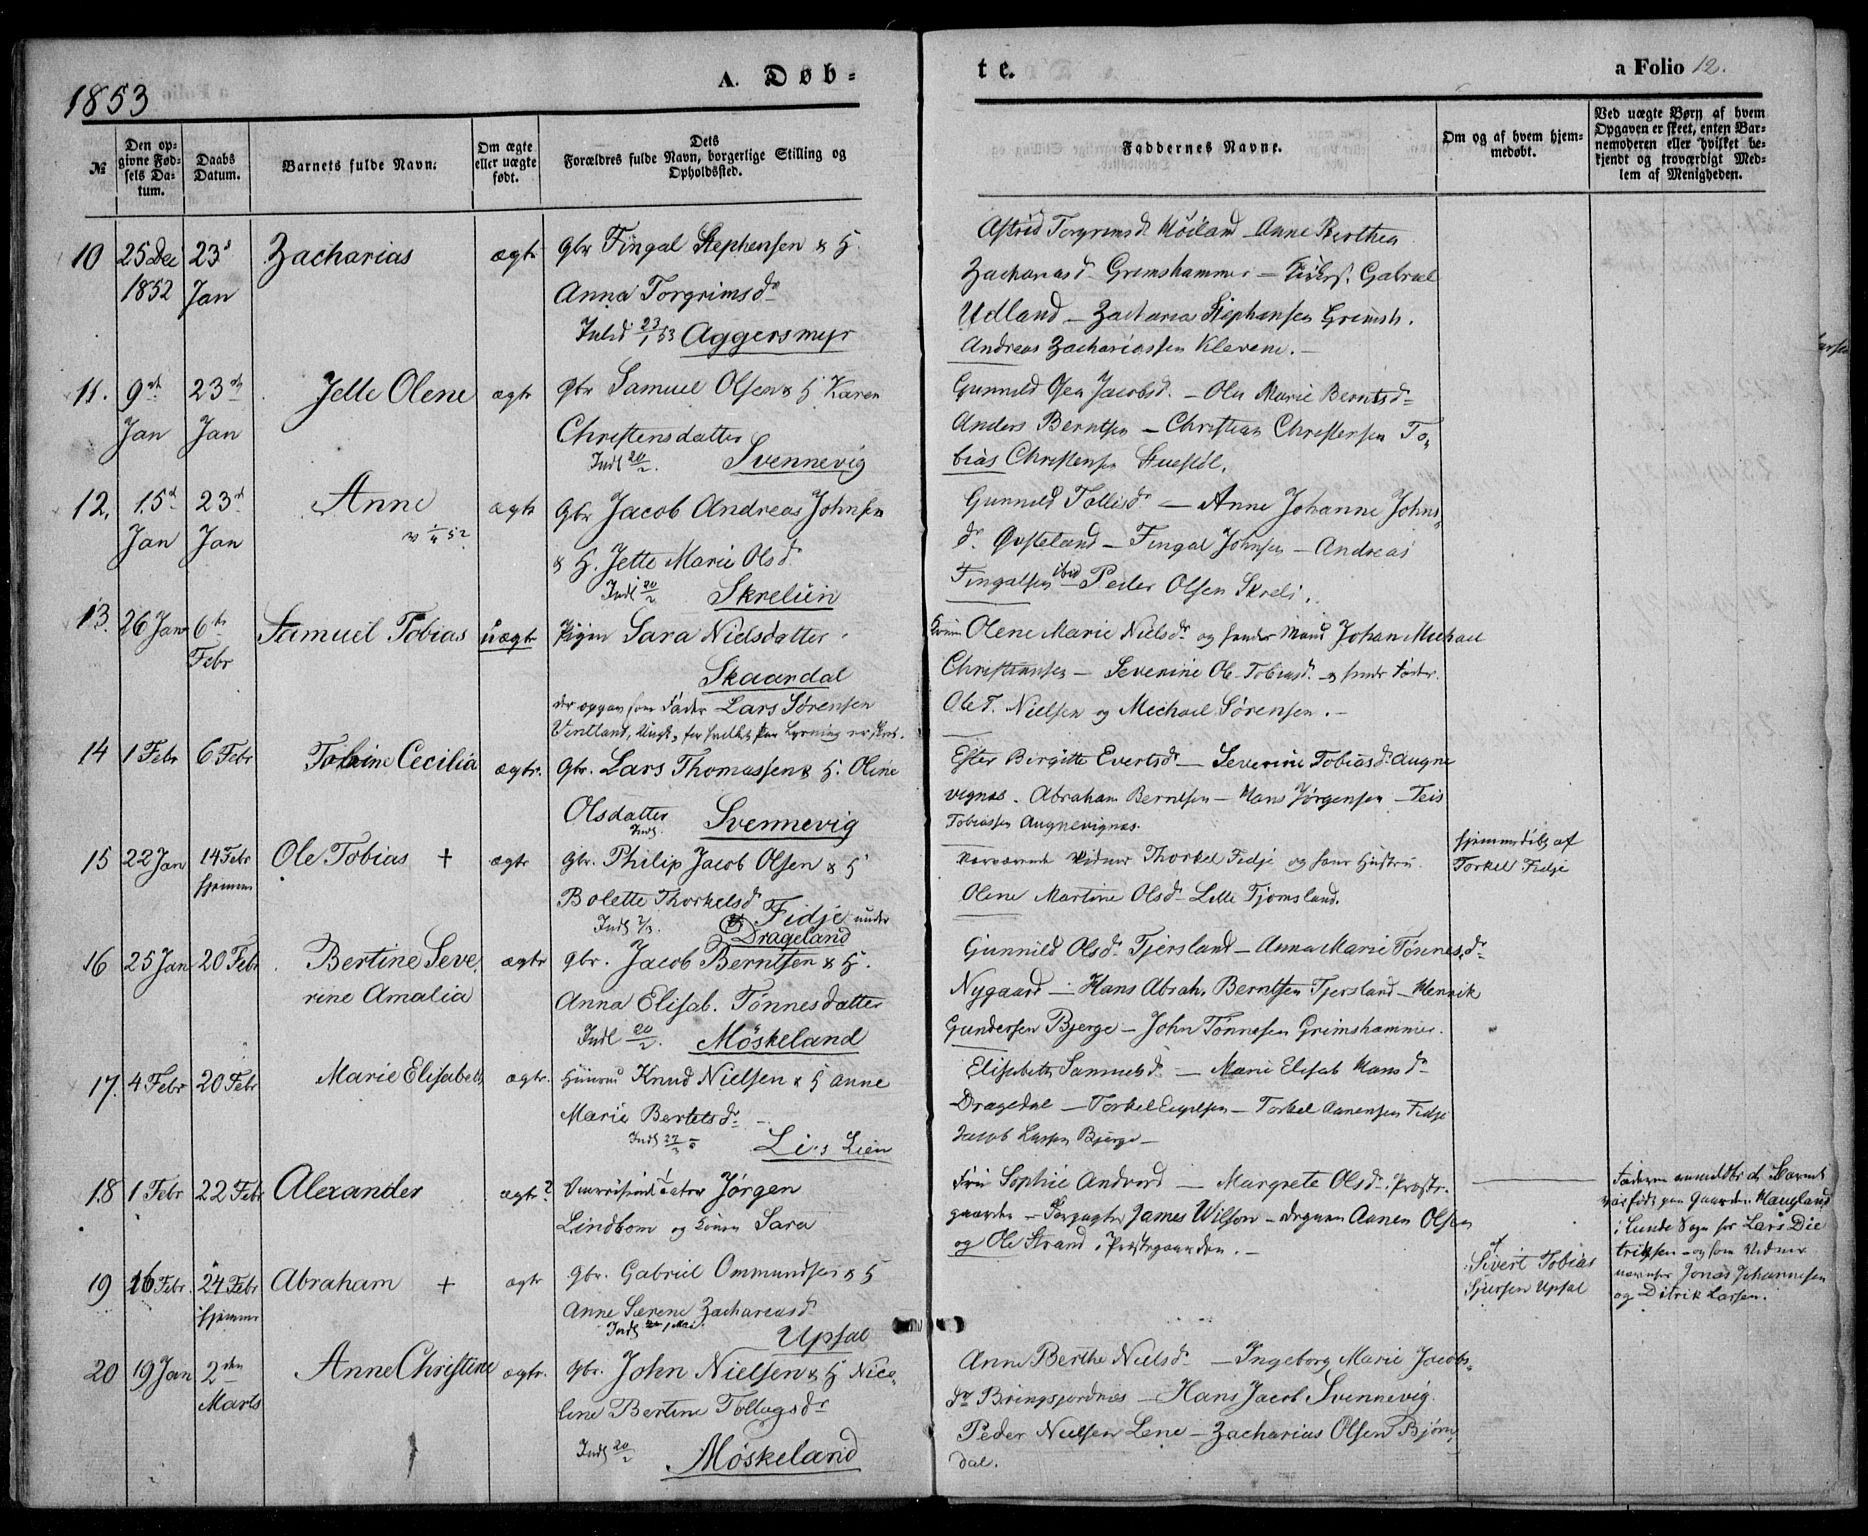 1853
A. Døb-
te.
a Folio 12.
№
Den op-
givne Fød-
sels Da-
tum.
Daabs
Datum.
Barnets fulde Navn.
Om ægte
eller uægte
født.
Dets
Forældres fulde Navn, borgerlige Stilling og
Opholdssted.
Faddernes Navne.
Om og af hvem hjem-
medøbt.
Ved uægte Børn af hvem
Opgaven er skeet, enten Bar-
nemoderen eller hvilket be-
kjendt og troværdigt Med-
lem af Menigheden.
10 25 Dec 23d Zacharias ægte Gbr Fingal Stephensen & H.
1852 Jan Anna Torgrimsdr
23/1 53 Aggersmyr
Astrid Torgrimsdr Høiland - Anne Berthea
Zachariasdr Grimshammer - Gabriel
Udland - Zacharia Stephansen Grimsh.
Andreas Zachariassen Klevene. -
11. 9de 23de Jelle Olene ægte Gbr Samuel Olsen & H Karen
Jan Jan Christensdatter
Indl 20/2. Svennevig
Gunnild Jacobsd. - Marie Berntsd
Anders Berntsen - Christian Christensen To-
bias Christensen
12. 15d 23d Anne ægte Gbr Jacob Andreas Johnsen
Jan Jan & H. Jette Marie Olsdr
Indl 20/2 Skrelien
Gunnild Tollisdr - Anne Johanne Johns-
dr. Øvsteland - Fingal Johnsen - Andreas
Fingalsen ibid Peder Olsen Skreli.
13. 26 Jan 6te Samuel Tobias uægte Pigen Sara Nielsdatter
Febr Skaardal
der opgav som Fader Lars Sørensen
Olene Marie Nielsdr og hendes Mand Johan Michael
Christiansen - Severine Ol. Tobiasdr og hendes Fader
Ole T. Nielsen og Michael Sørensen. -
14 1 Febr 6 Febr Tobine Cecilia ægte. Gbr. Lars Thomassen & H. Oline
Olsdatter
Indl. Svennevig
Ester Birgitte Evertsdr - Severine Tobiasdr Augne
vignæs. Abraham Berntsen - Hans Jørgensen - Teis
Tobiassen Augnevignæs.
15 22 Jan 14 Febr Ole Tobias + ægte Gbr. Philip Jacob Olsen & H
hjemme Bolette Thorkelsdr
Indl 7/3. Fidje under
Drageland
Nærværende Vidner Thorkel Fidje og hans Hustru
Olene Martine Olsdr Lille Tjomsland.
hjemmedøbt af
Torkel Fidje
16 25 Jan 20 Febr Bertine Seve- ægte Gbr. Jacob Berntsen & H.
rine Amalia Anna Elisab. Tønnesdatter
Indl 20/2. Møskeland
Gunnild Olsdr Tjersland - Anna Marie Tønnesdr
Nygaard - Hans Abrah. Berntsen Tjersland - Henrik
Gundersen Bjerge - John Tønnesen Grimshammer.
17. 4 Febr 20 Febr Marie Elisabeth ægte. Knud Nielsen & H Anne
Marie Bertelsdr -
Indl Lien
Elisabeth Samuelsdr - Marie Elisab Hansdr
Dragedal - Torkel - Torkel Aanensen Fidje
Jacob Larsen Bjerge -
18 1 Febr 22 Febr Alexander ægte? Jørgen
Lindbom og Konen Sara
Frü Sophie Andvord - Margrete Olsdr Præste-
gaarden - Forpagter James Wilson - Aanen Olsen
og Ole Strand i Præstegaarden. -
Faderen anmeldte at Barnet
var født paa Gaarden Haugland
i Lunde Sogn hos Lars Die
triksen - og som Vidner
nævner Jonas Johannesen
og Ditrik Larsen.
19 16 Febr. 24 Febr Abraham + ægte Gbr. Gabriel Ommundsen & H
hjemme Anne Serene Zachariasdr
Indl Upsal
af
Sivert Tobias
Sjursen Upsal
20 19 Jan 2den Anne Christine ægte. Gbr. John Nielsen & H Nico-
Marts line Bertine Tollagsdr
Indl 20/2 Møskeland
Anne Berthe Nielsdr - Ingeborg Marie Jacobs-
dr Bringsjordnæs - Hans Jacob Svennevig
Peder Nielsen Lene - Zacharias Olsen Bjørn
dal.